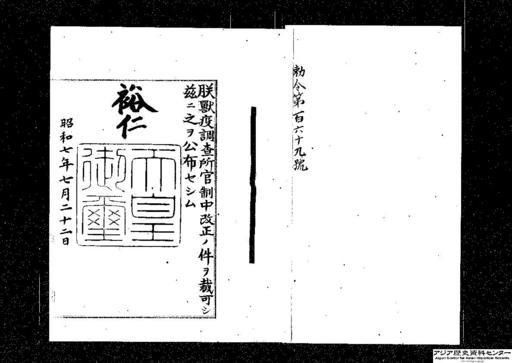 勅令第百六十九號
朕獸疫調查所官制中改正ノ件ヲ裁可シ
茲ニ之ヲ公布セシム
裕仁
天皇御璽
昭和七年七月二十二日
アジア歴史資料センター
Japan Center for Asian Historical Records